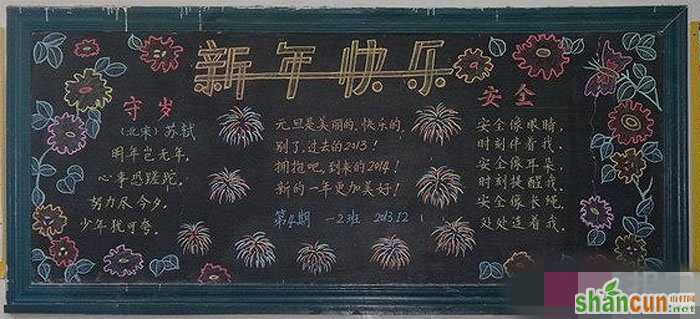 新年快乐
守岁
(北宋) 苏轼
明年岂无年,
心事恐蹉跎,
努力尽今夕,
少年犹可夸。
元旦是美丽的、快乐的,
别了,过去的2013!
拥抱吧,到来的2014!
新的一年更加美好!
第4期 一2班 2013.12
安全
安全像眼睛,
时刻伴着我。
安全像耳朵,
时刻提醒我。
安全像长绳,
处处连着我。
shancun
山村网
.net